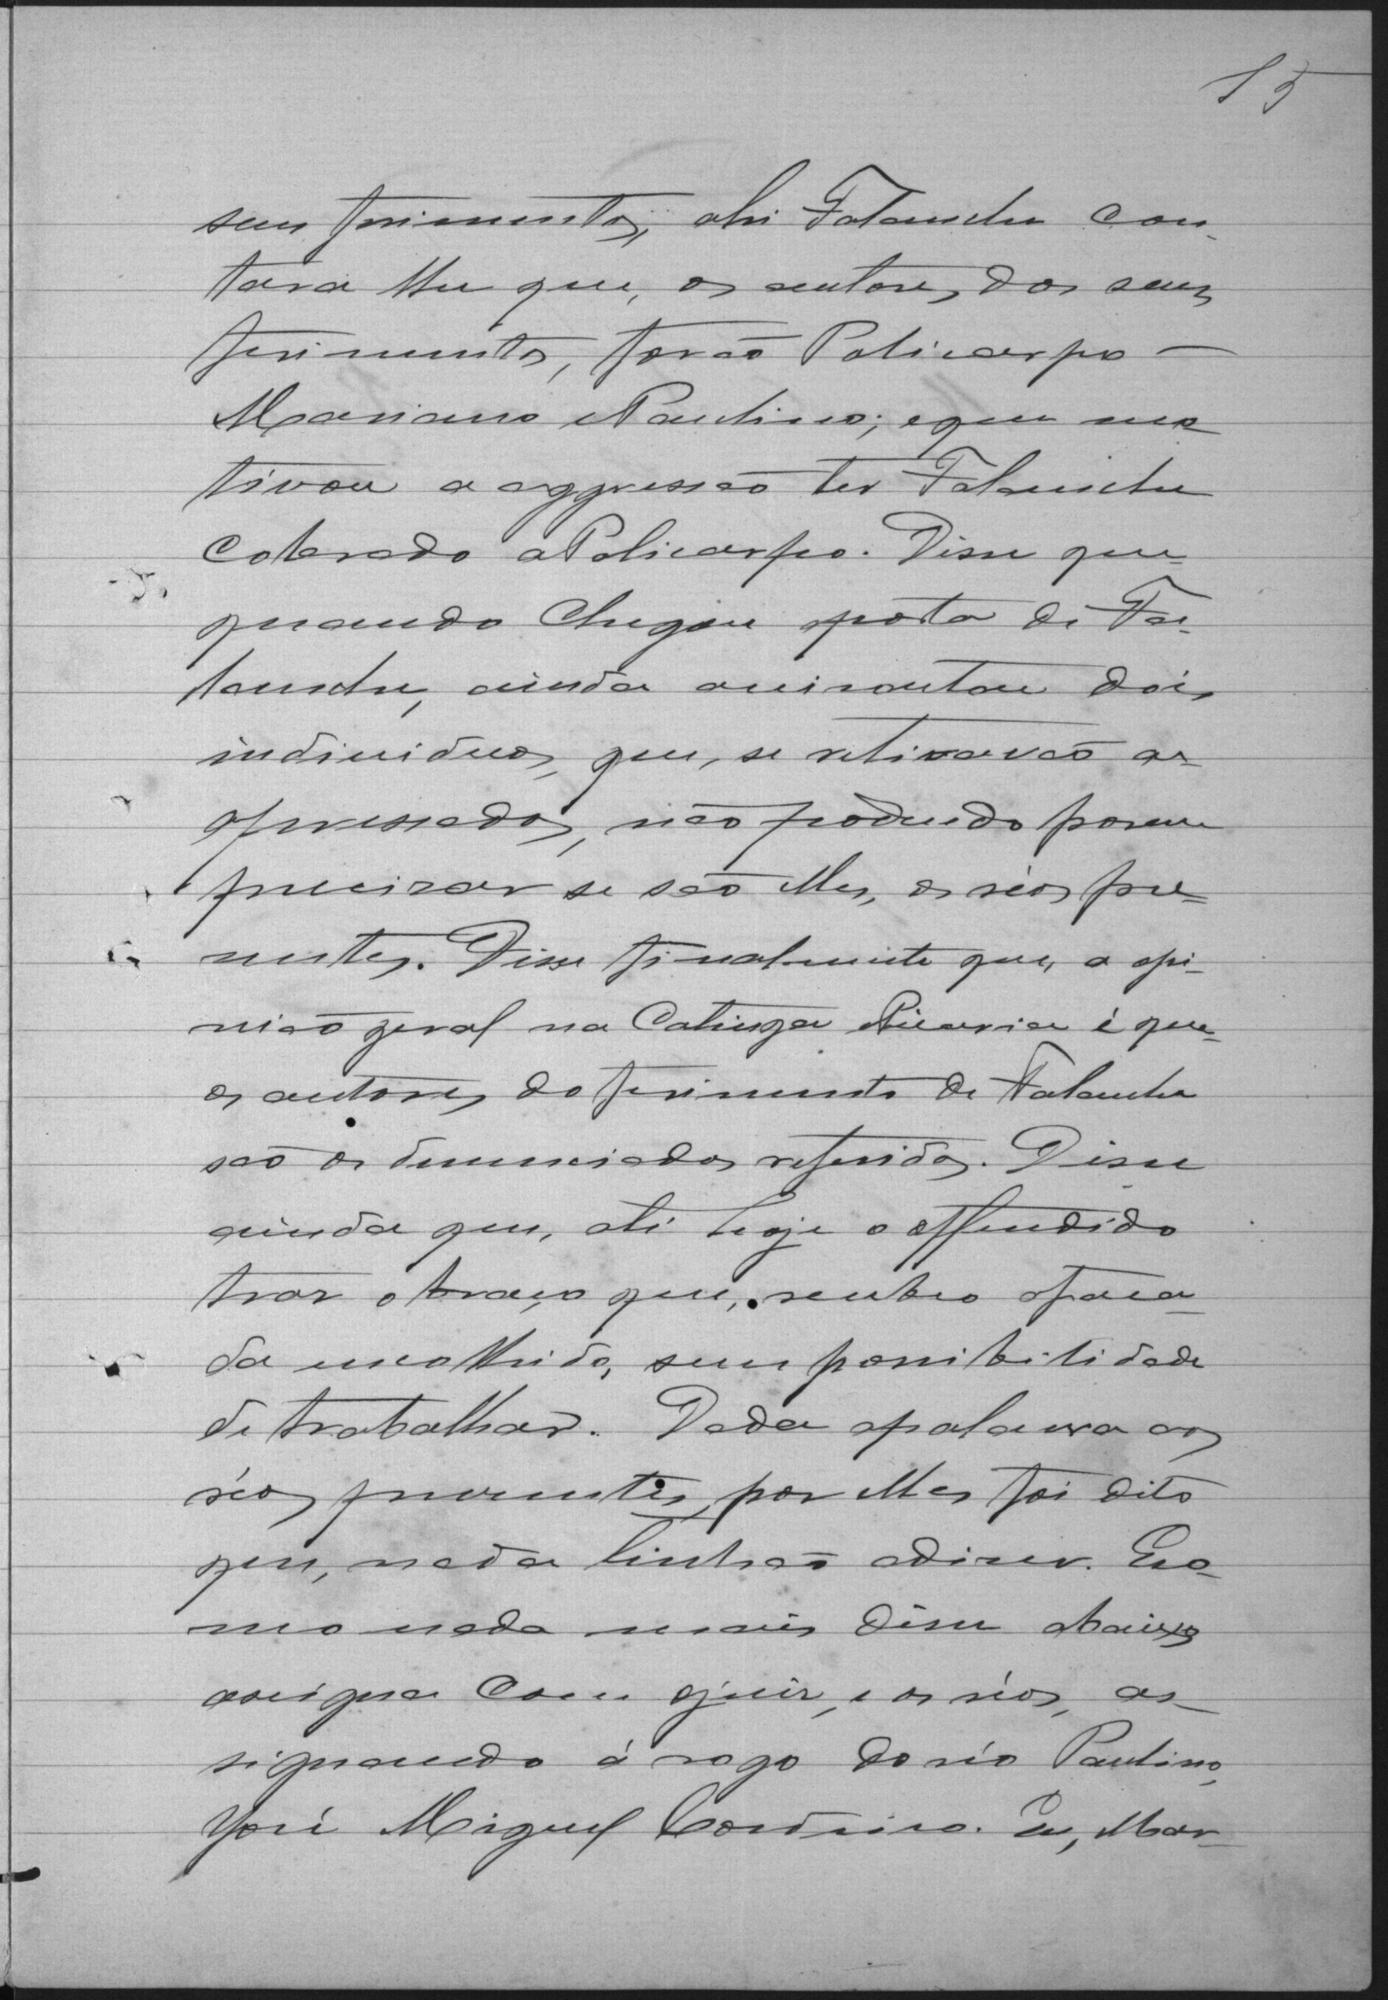 15
seus ferimentos, ahi Falanche con-
tara lhe que, os autores dos seus
ferimentos, forão Policarpo
Mariano e Paulino; e que mo
tivou a aggressão ter Falanche
cobrado a Policarpo. Disse que
quando chegou a porta de Fa-
lanche, ainda avisoutou dois
individuos, que, se retiravão a-
pressados, não podendo porem
precizar se são elles, os réos pre-
sentes. Disse finalmente que, a opi-
nião geral na Catinga é que
os autores do ferimento de Falanche
são os denunciados referidos. Disse
ainda que, até hoje o offendido
traz o braço que, recebeo a faca-
da encolhido, sem possibilidade
de trabalhar. Dada a palavra aos
réos presentes, por elles foi dito
que, nada tinhão a dizer. E co-
mo nada mais disse abaixo
assigna com o juiz, e os réos, as-
signando á rogo do réo Paulino,
José Miguel Cordeiro. Eu, Mar-